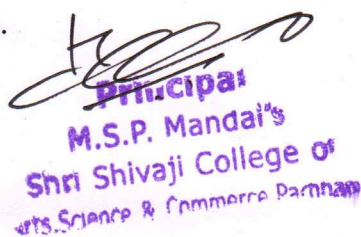 Principal
M.S.P. Mandal's
Shri Shivaji College of
Arts, Science & Commerce